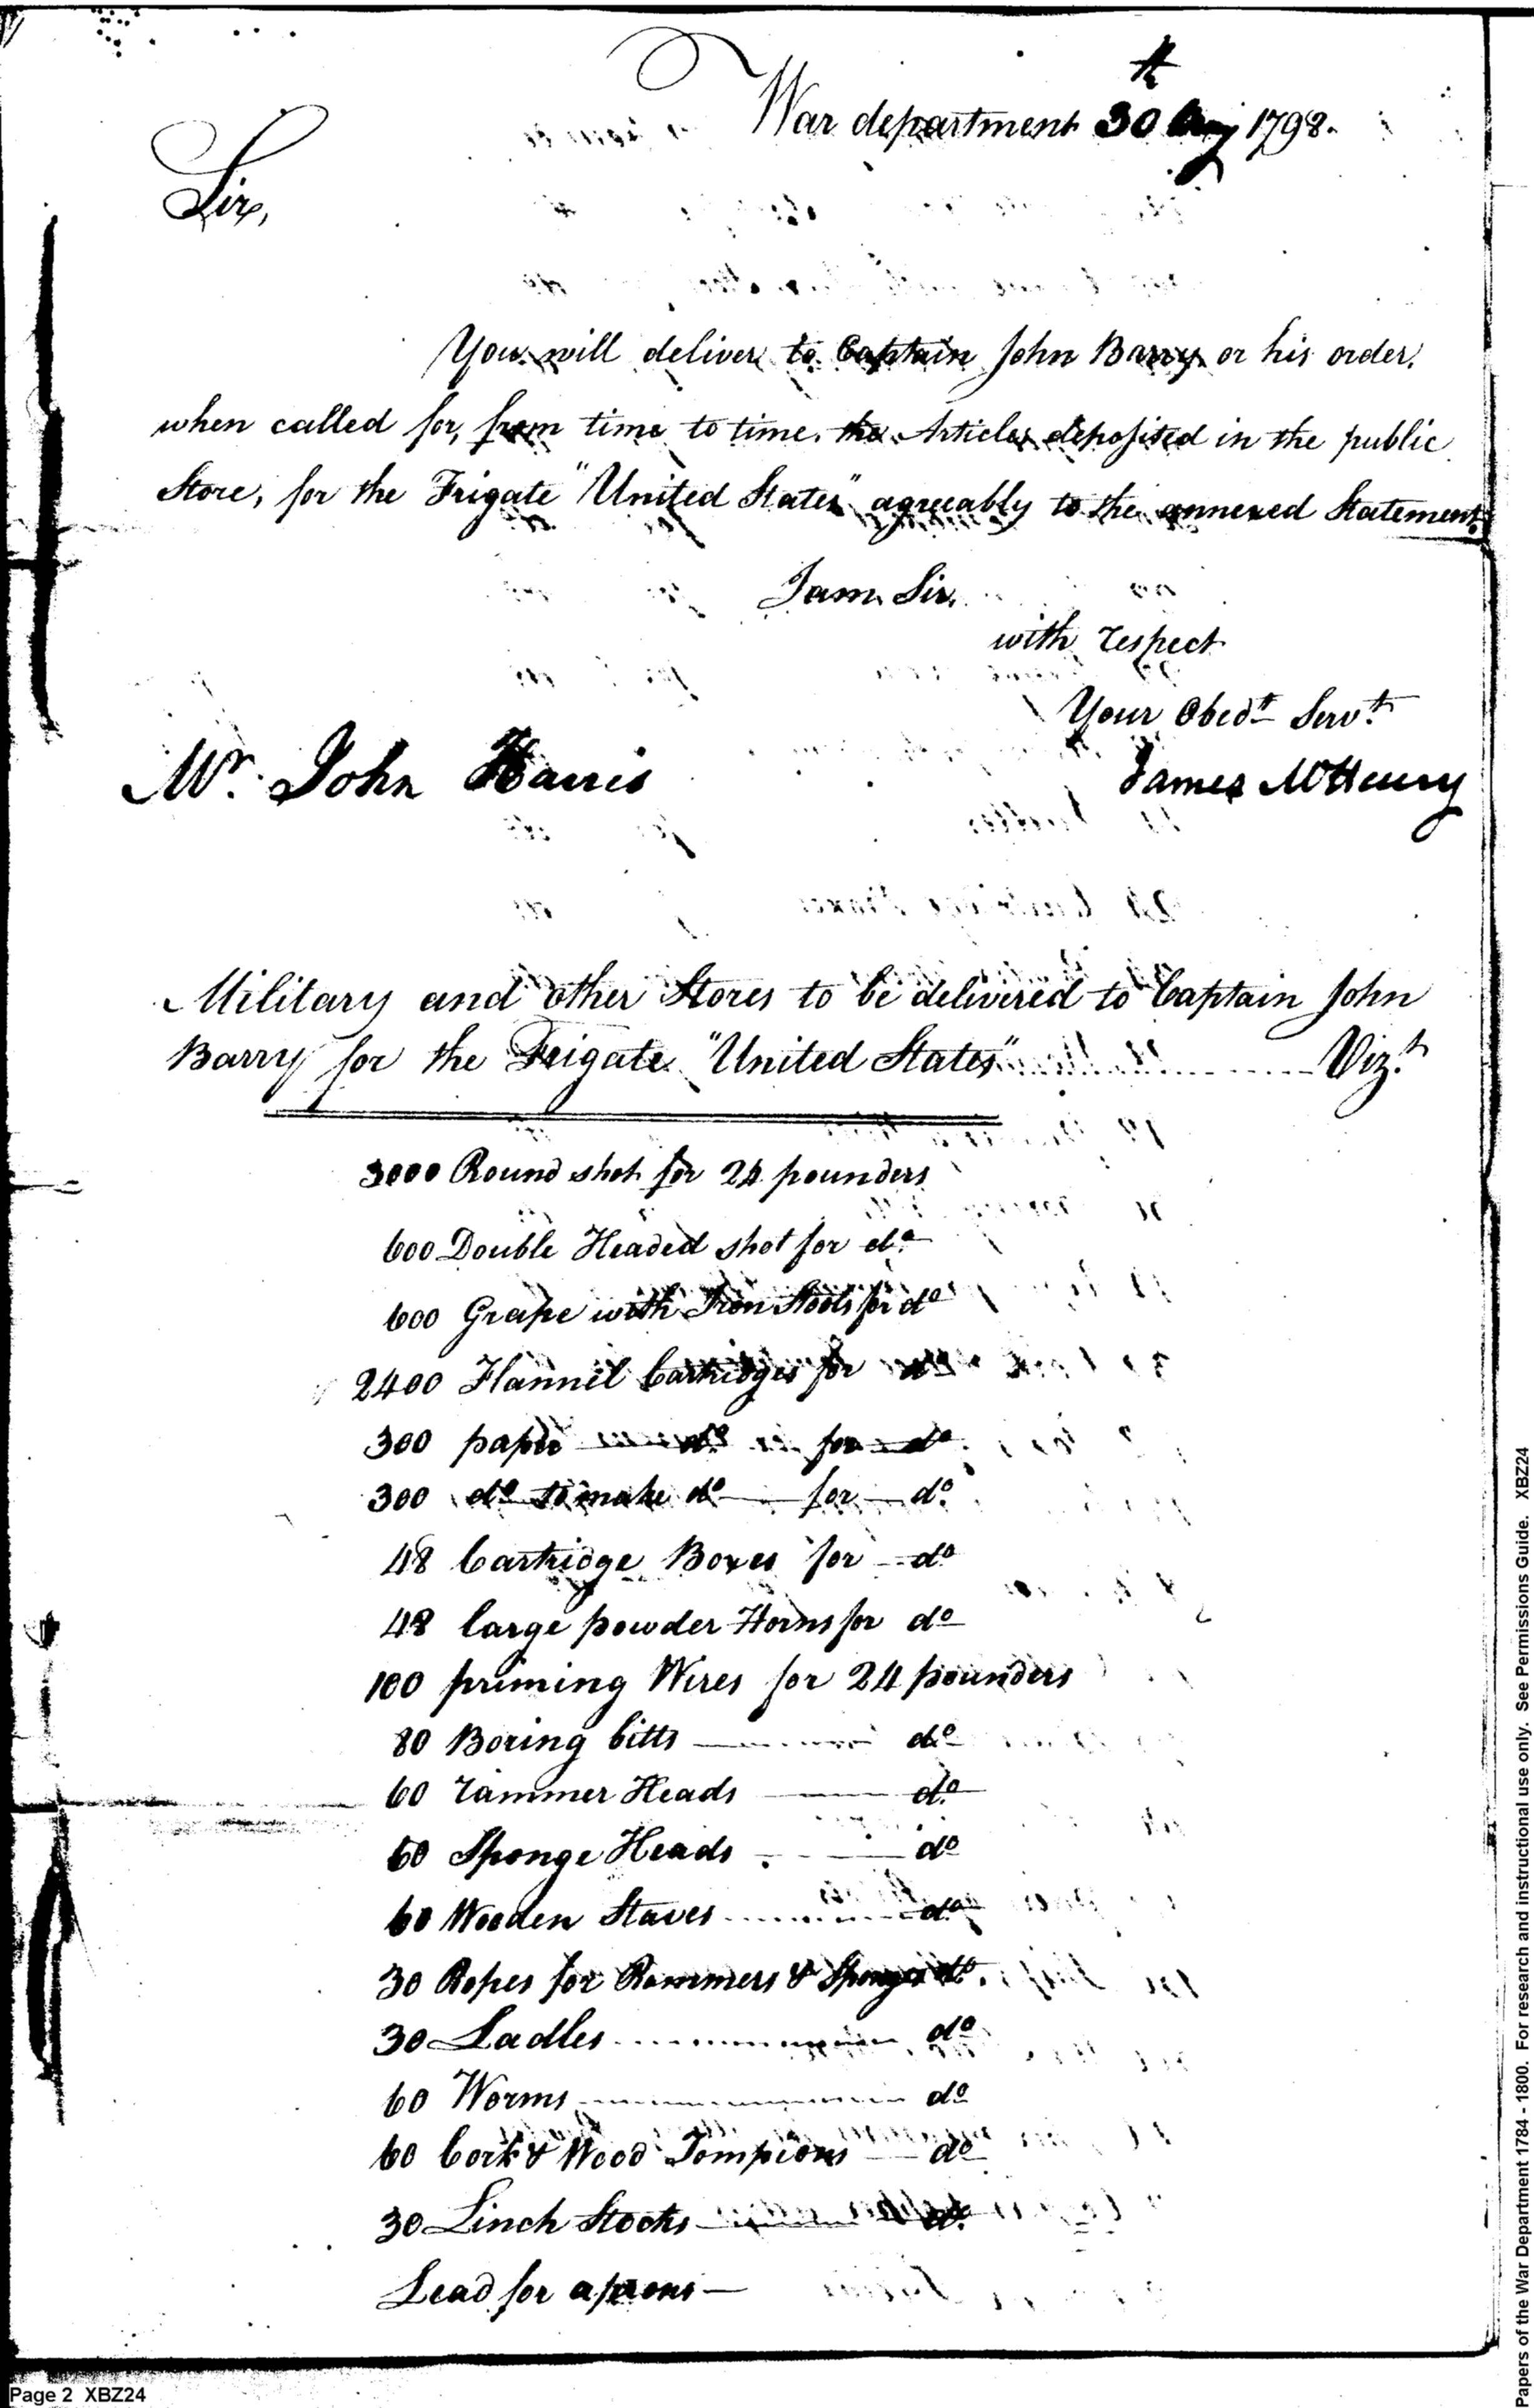 War department 30th 1798.
Sir,
You will deliver to Captain John Barry or his order,
when called for, from time to time, the Articles deposited in the public
Store, for the Frigate "United States" agreeably to the annexed Statement.
I am Sir,
with respect
Your Obedt Servt
James McHenry
Mr. John Harris
Military and other Stores to be delivered to Captain John
Barry for the Frigate "United States" Vizt.
3000 Round shot for 24 pounders
600 Double Headed shot for do.
600 Grape with Iron Stools for do
2400 Flannel Cartridges for do
300 paper do for do
300 do to make do for do.
48 Cartridge Boxes for do
48 large powder Horns for do
100 priming Wires for 24 pounders
80 Boring bitts do
60 rammer Heads do.
60 Sponge Heads do
60 Wooden Staves do
30 Ropes for Rammers & Sponges do.
30 Ladles do
60 Worms do
60 Cork & Wood Tompions do
30 Linch Stocks do.
Lead for aprons
Page 2 XBZ24
Papers of the War Department 1784 - 1800. For research and instructional use only. See Permissions Guide. XBZ24